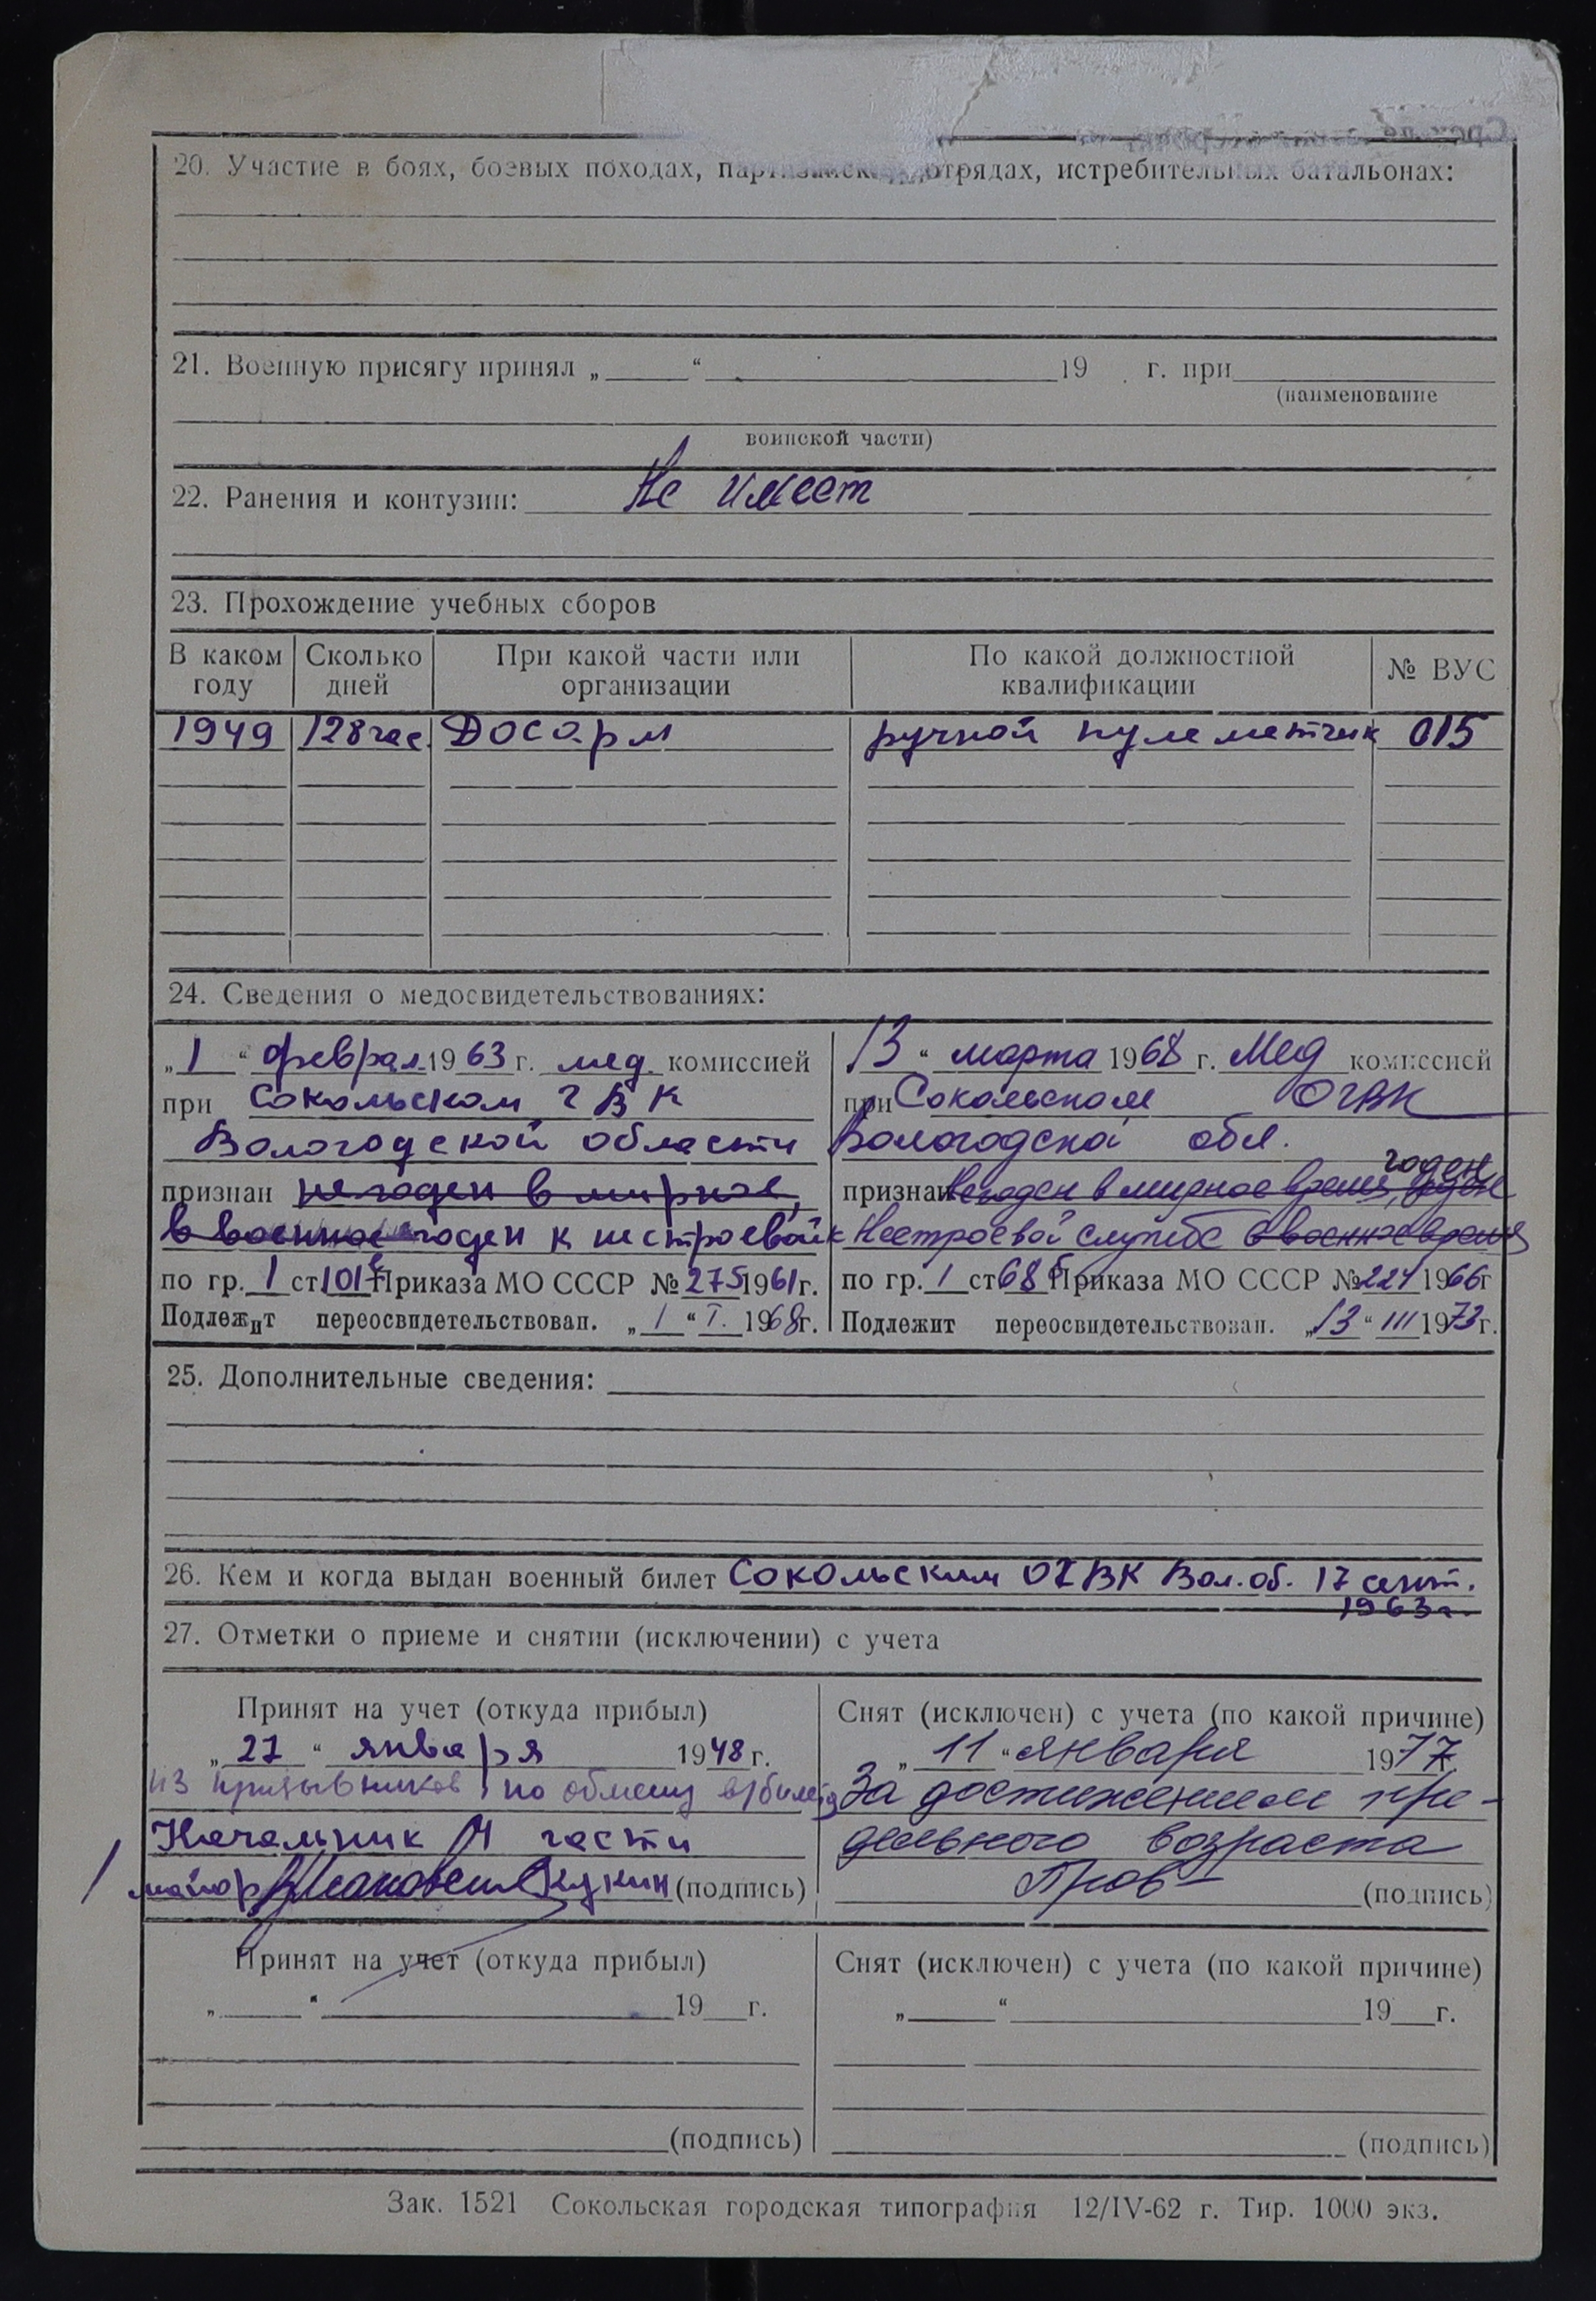 20. Участие в боях, боевых походах, партизанских отрядах, истребительных батальонах:
21. Военную присягу принял „ “ 19 г. при
(наименование
воинской части)
22. Ранения и контузии: Не имеет
23. Прохождение учебных сборов
В каком году Сколько дней При какой части или организации По какой должностной квалификации № ВУС
1949 128 час. Досарм ручной пулеметчик 015
24. Сведения о медосвидетельствованиях:
„1“ феврал. 1963 г. мед. комиссией
при Сокольском ГВК
Вологодской области
признан не годен в мирное,
в военное годен к нестроевой
по гр. 1 ст. 101 Приказа МО СССР № 275 1961 г.
Подлежит переосвидетельствован. „1“ I. 1968 г.
13“ марта 1968 г. Мед комиссией
при Сокольском ОГВК
Вологодской обл.
годен
признан не годен в мирное время, годен
к нестроевой службе в военное время
по гр. 1 ст 68 б Приказа МО СССР № 224 1966 г
Подлежит переосвидетельствован. „13“ III 1973 г.
25. Дополнительные сведения:
26. Кем и когда выдан военный билет Сокольским ОГВК Вол. об. 17 сент.
1963 г.
27. Отметки о приеме и снятии (исключении) с учета
Принят на учет (откуда прибыл)
„27“ января 1948 г.
из призывников, по обмену в/билета
Начальник 4 части
майор Кукин (подпись)
Снят (исключен) с учета (по какой причине)
„11“ января 1977
За достижением пре-
дельного возраста
(подпись)
Принят на учет (откуда прибыл)
„ “ 19 г.
(подпись)
Снят (исключен) с учета (по какой причине)
„ “ 19 г.
(подпись)
Зак. 1521 Сокольская городская типография 12/IV-62 г. Тир. 1000 экз.